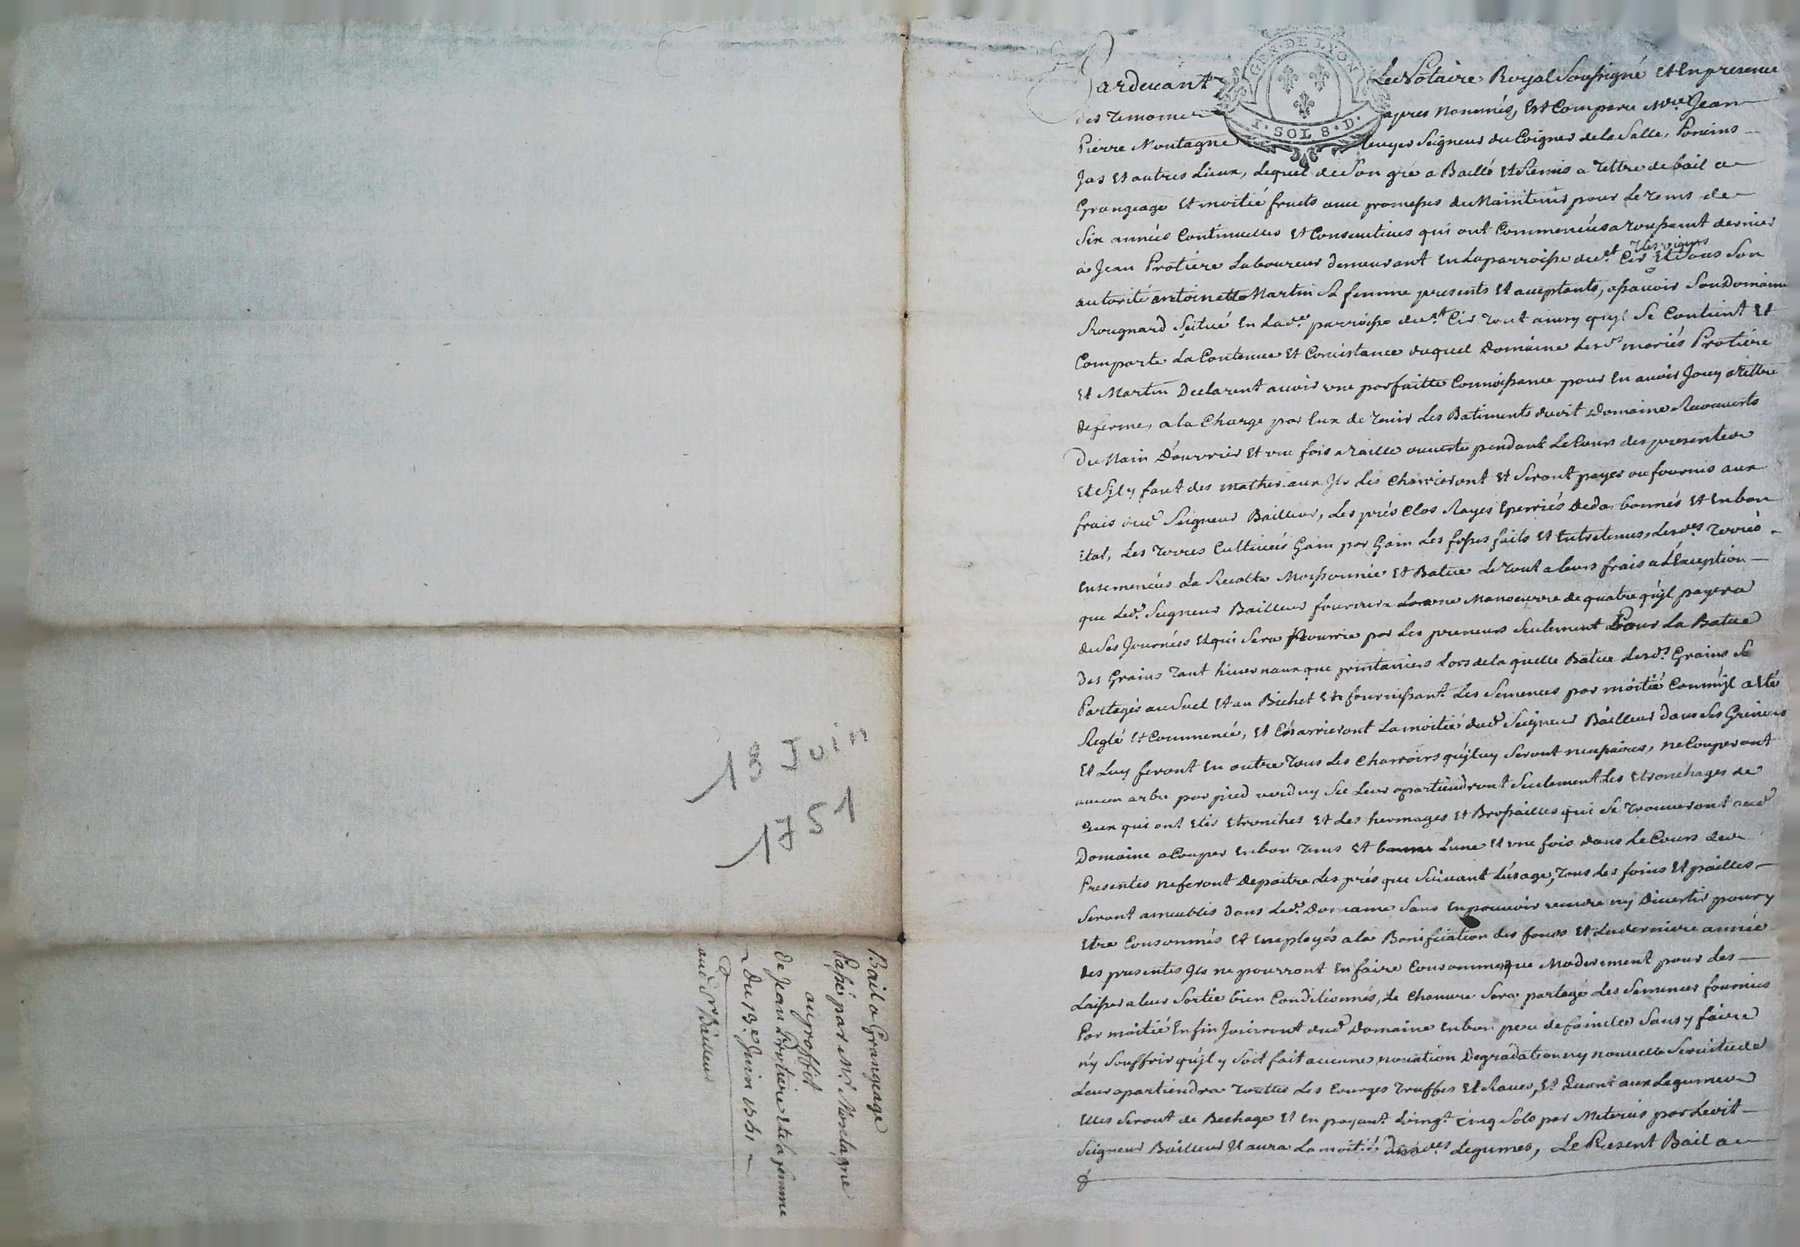 GEN·DE LYON
1·SOL 8·D·
Pardevant Le Notaire Royal Soussigné Et En presence
des temoins apres nommés, Est Comparu Mre Jean
Pierre Montagne Ecuyer Seigneur du Poigner de la Salle, Poncins
Jas Et autres Lieux, Lequel de Son gré a Baillé Et Remis a tittre de bail a
Grangeage Et moitié fruits avec promesses de Maintenir pour Le tems de
Six années Continuelles Et Consecutives qui ont Commencées a toussaint dernier
a Jean Protiere Laboureur demeurant En La parroisse de st Cir Les vignes Et Sous Son
autorité antoinette Martin Sa femme presents Et acceptants, asçavoir Son Domaine
Rougnard Scitué En Lade parroisse de st Cir tout ainsy quil Se Contient Et
Comporte La Contenue Et Consistance duquel Domaine Lesds mariés Protiere
Et Martin Declarent avoir une parfaitte Connoissance pour En avoir Jouy a tittre
de ferme, a la Charge par Eux de tenir Les Batiments dudit Domaine Recouverts
De Main D'ouvrier Et une fois a taille ouverte pendant Le Cours des presentes
Et S'il y faut des matheriaux Ils Les Charrieront Et Seront payés ou fournis aux
frais dud Seigneur Bailleur, Les prés Clos Rayés Eperriés Dedo bonnés Et En bon
Etat, Les terres Cultivées Gain par Gain Les fosses faits Et Entretenus, Lesdes terres
Ensemencées La Recolte Moissonnée Et Batue Le tout a leurs frais a L'Exception
que Led. Seigneur Bailleur fournira un Manoeuvre de quatre qu'il payera
de Ses Journées Et qui Sera Nourrie par Les preneurs Seulement Pour La Batue
Des Grains tant hivernaux que printaniers Lors de la quelle Batue Lesds Grains Se
Partagés au Suel Et au Bichet En fournissant Les Semences par moitié Comme il a Eté
Reglé Et Commencé, Et Charrieront La moitié dud Seigneur Bailleur dans Ses Greniers
Et Luy feront En outre tous Les Charrois qu'il luy Seront necessaires, ne Couperont
aucun arbre par pied verd ny Sec Leur apartiendront Seulement Les Etronchages de
Ceux qui ont Etés Etronchés Et Les hermages Et Brossailles qui Se trouveront aud
Domaine a Couper En bon tems Et bonne Lune Et une fois dans Le Cours des
Presentes ne feront Depaitre Les prés que Suivant L'usage, tous Les foins Et pailles
Seront ameublis dans Led. Domaine Sans En pouvoir vendre ny Divertir pour y
Etre Consommés Et Employés a la Bonification des fonds Et La derniere année
Des presentes Ils ne pourront En faire Consommer que Moderement pour Les
Laisser a leur Sortie bien Conditionnés, Le Chanvre Sera partagé Les Semences fournies
Par moitié Enfin Jouiront dud Domaine En bon pere de famille Sans y faire
ny Souffrir qu'il y Soit fait aucune novation Degradation ny nouvelle Servitude
Leur apartiendra toutes Les Courges truffes Et Raves, Et Quant aux Legumes
Elles Seront de Bechage Et En payant Vingt Cinq Sols par Meterée par Ledit
Seigneur Bailleur Il aura La moitié Desdes Legumes, Le Present Bail a
13 Juin
1751
Bail a Grangeage
Passé par Mr Montagne
au proffit
de Jean Protiere Et Sa femme
Du 13e Juin 1751
aud Sr Bailleur